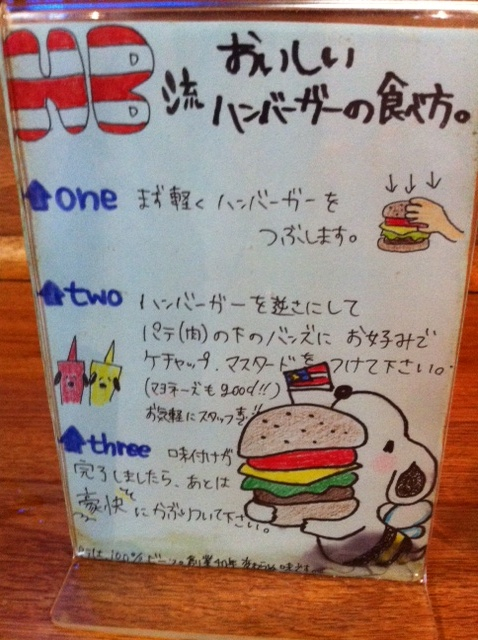 HB流 おいしい
ハンバーガーの食べ方。
one まず軽くハンバーガーを
つぶします。
two ハンバーガーを逆さにして
パテ(肉)の下のバンズに お好みで
ケチャップ、マスタードを つけて下さい。
(マヨネーズも good!!)
お気軽にスタッフまで!!
three 味付けが
完了しましたら、あとは
豪快にかぶりついて下さい。
100%ビーフ。創業40年 変わらない味です